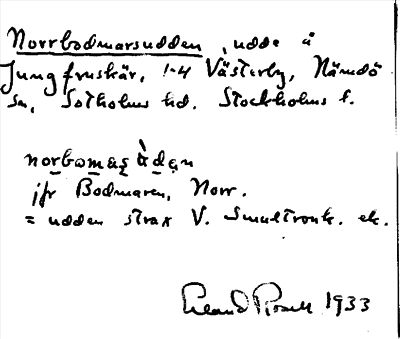 Norrbodmarsudden, udde å
Jungfruskär, 1-4 Västerby, Nämdö
sn, Sotholms hd. Stockholms l.
norbomaṣùdạn
jfr Bodmaren, Norr.
= udden strax V. Smultronk. ek.
Erland Rosell 1933